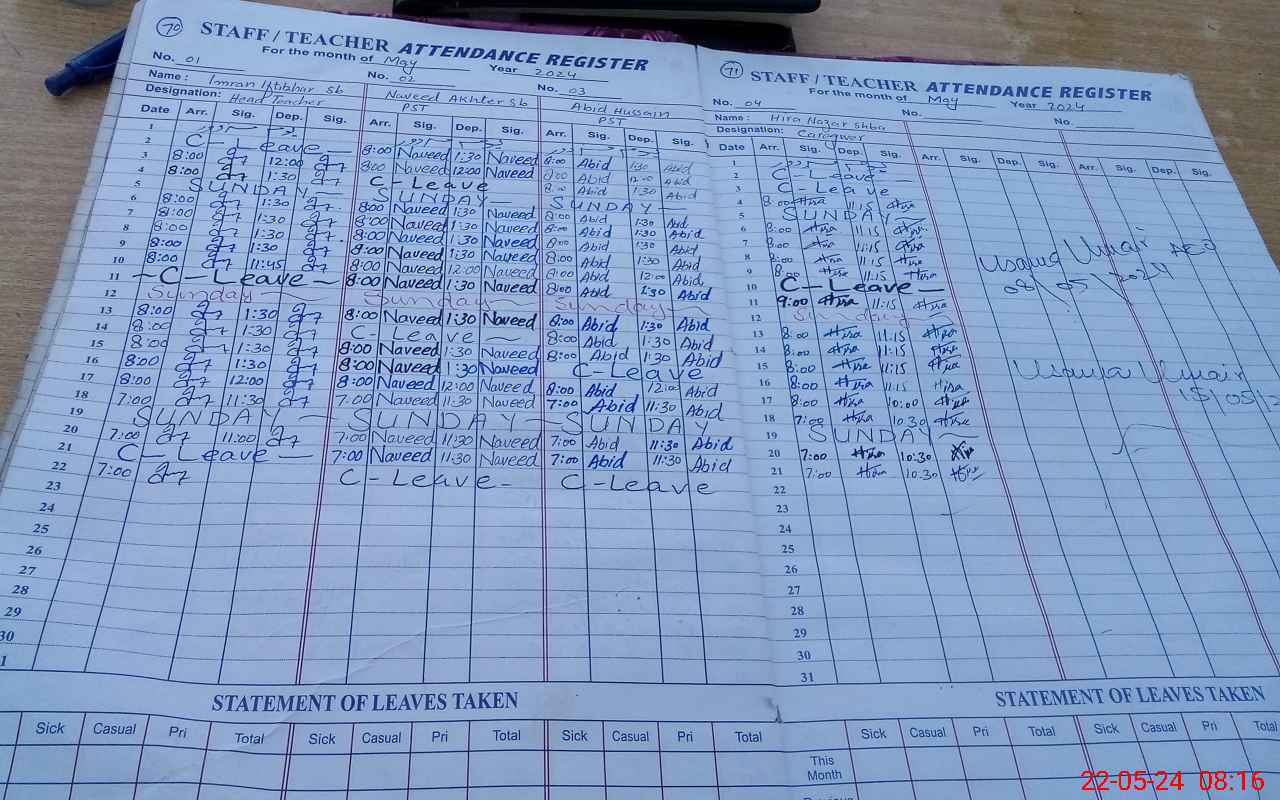 70
STAFF / TEACHER ATTENDANCE REGISTER
For the month of May Year 2024
No. 01 No. 02 No. 03
Name : Imran Naveed Akhter Sb Abid Hussain
Designation: Head Teacher PST PST
Date Arr. Sig. Dep. Sig. Arr. Sig. Dep. Sig. Arr. Sig. Dep. Sig.
1
2 C - Leave 8:00 Naveed 1:30 Naveed 8:00 Abid 1:30 Abid
3 8:00 12:00 8:00 Naveed 12:00 Naveed 8:00 Abid 12:00 Abid
4 8:00 1:30 C - Leave 8:00 Abid 1:30 Abid
5 SUNDAY SUNDAY SUNDAY
6 8:00 1:30 8:00 Naveed 1:30 Naveed 8:00 Abid 1:30 Abid
7 8:00 1:30 8:00 Naveed 1:30 Naveed 8:00 Abid 1:30 Abid
8 8:00 1:30 8:00 Naveed 1:30 Naveed 8:00 Abid 1:30 Abid
9 8:00 1:30 8:00 Naveed 1:30 Naveed 8:00 Abid 1:30 Abid
10 8:00 11:45 8:00 Naveed 12:00 Naveed 8:00 Abid 12:00 Abid
11 C - Leave 8:00 Naveed 1:30 Naveed 8:00 Abid 1:30 Abid
12 Sunday Sunday Sunday
13 8:00 1:30 8:00 Naveed 1:30 Naveed 8:00 Abid 1:30 Abid
14 8:00 1:30 C - Leave 8:00 Abid 1:30 Abid
15 8:00 1:30 8:00 Naveed 1:30 Naveed 8:00 Abid 1:30 Abid
16 8:00 1:30 8:00 Naveed 1:30 Naveed C - Leave
17 8:00 12:00 8:00 Naveed 12:00 Naveed 8:00 Abid 12:00 Abid
18 7:00 11:30 7:00 Naveed 11:30 Naveed 7:00 Abid 11:30 Abid
19 SUNDAY SUNDAY SUNDAY
20 7:00 11:00 7:00 Naveed 11:30 Naveed 7:00 Abid 11:30 Abid
21 C - Leave 7:00 Naveed 11:30 Naveed 7:00 Abid 11:30 Abid
22 7:00 C - Leave - C - Leave
23
24
25
26
27
28
29
30
1
STATEMENT OF LEAVES TAKEN
Sick Casual Pri Total Sick Casual Pri Total Sick Casual Pri Total
71
STAFF / TEACHER ATTENDANCE REGISTER
For the month of May Year 2024
No. 04 No. No.
Name : Hira Nazar
Designation: Caregiver
Date Arr. Sig. Dep. Sig. Arr. Sig. Dep. Sig. Arr. Sig. Dep. Sig.
1
2 C - Leave
3 C - Leave
4 8:00 Hira 11:15 Hira
5 SUNDAY
6 8:00 Hira 11:15 Hira
7 8:00 Hira 11:15 Hira
8 8:00 Hira 11:15 Hira
9 8:00 Hira 11:15 Hira
10 C - Leave
11 9:00 Hira 11:15 Hira
12 Sunday
13 8:00 Hira 11:15 Hira
14 8:00 Hira 11:15 Hira
15 8:00 Hira 11:15 Hira
16 8:00 Hira 11:15 Hira
17 8:00 Hira 10:00 Hira
18 7:00 Hira 10:30 Hira
19 SUNDAY
20 7:00 Hira 10:30
21 7:00 Hira 10:30 Hira
22
23
24
25
26
27
28
29
30
31
Umair AEO
08/05/2024
Umair
STATEMENT OF LEAVES TAKEN
Sick Casual Pri Total Sick Casual Pri Total
This
Month
22-05-24 08:16